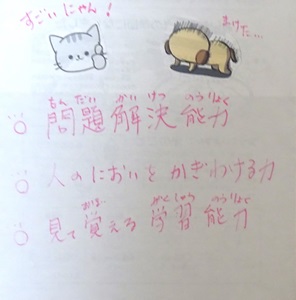 すごいにゃん!
まけた...
もん だい かい けつ のうりょく
問題解決能力
人のにおいをかぎわける力
おぼ がくしゅう のうりょく
見て覚える学習能力